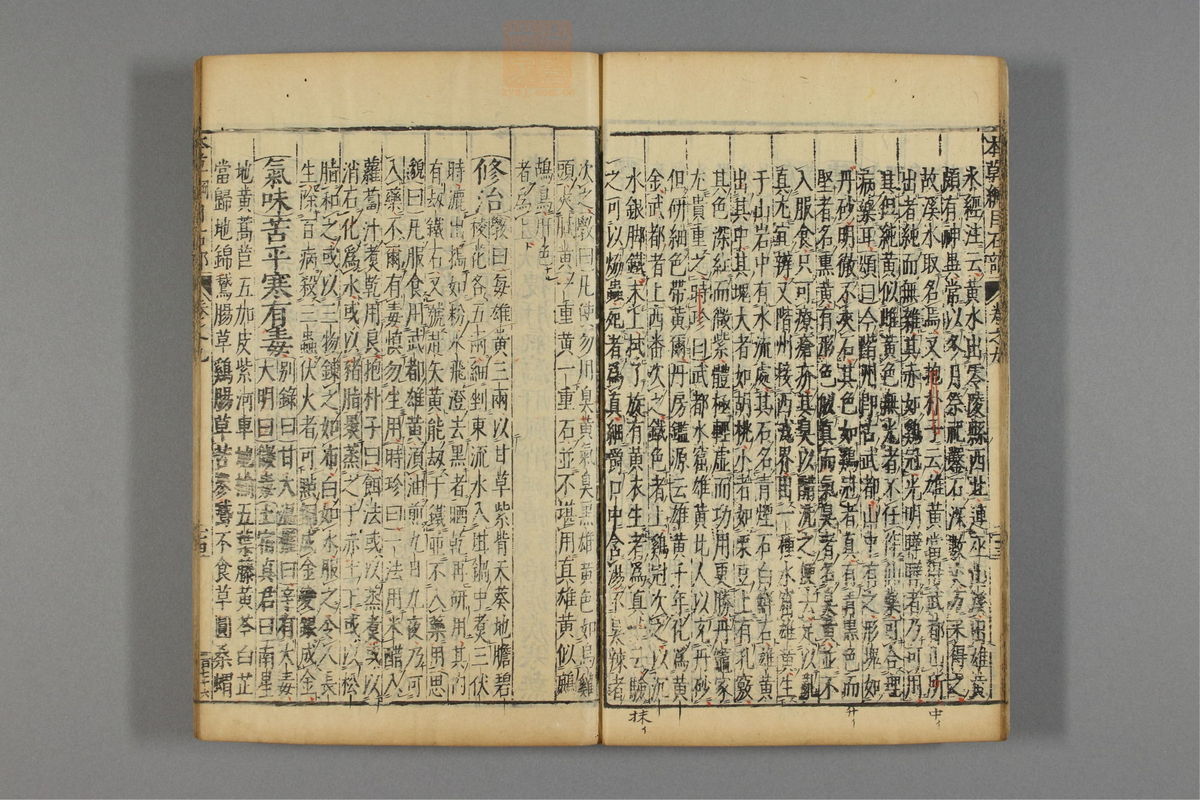 本草綱目石部 卷之九
水經注云黃水出零陵縣西北連巫山溪出雄黃
頗有神異常以冬月祭祀鑿石深數丈方采得之
故溪水取名焉又抱朴子云雄黃當得武都山所
出者純而無雜其赤如雞冠光明曄曄者乃可用
其但純黃似雌黃色無光者不任作仙藥可合理
病藥耳頌曰今階州即古武都山中有之形塊如
丹砂明徹不夾石其色如雞冠者真有青黑色而
堅者名熏黃有形色似真而氣臭者名臭黃並不
入服食只可療瘡疥其臭以醋洗之便去足以亂
真尤宜辨又階州接西戎界出一種水窟雄黃生
于山岩中有水流處其石名青煙石白鮮石雄黃
出其中其塊大者如胡桃小者如栗豆上有孔竅
其色深紅而微紫體極輕虛而功用更勝丹竈家
尤貴重之時珍曰武都水窟雄黃北人以充丹砂
但研細色帶黃爾丹房鑑源云雄黃千年化為黃
金武都者上西番次之鐵色者上雞冠次之以沉
水銀脚鐵末上拭了旋有黃衣生者為真一云驗
之可以熁蟲死者為真細嚼口中含湯不臭辣者
次之斅曰凡使勿用臭黃氣臭黑雄黃色如烏雞
頭夾膩黃一重黃一重石並不堪用真雄黃似鷓
鴣鳥肝色
者為上
修治斅曰每雄黃三兩以甘草紫背天葵地膽碧
稜花各五兩細剉東流水入坩鍋中煮三伏
時漉出搗如粉水飛澄去黑者晒乾再研用其內
有劫鐵石又號赴矢黃能劫于鐵並不入藥用思
邈曰凡服食用武都雄黃須油煎九日九夜乃可
入藥不爾有毒慎勿生用時珍曰一法用米醋入
蘿蔔汁煮乾用良抱朴子曰餌法或以蒸煮或以
消石化為水或以豬脂裹蒸之于赤土下或以松
脂和之或以三物鍊之如布白如冰服之令人長
生除百病殺三蟲伏火者可點銅成金變銀成金
氣味苦平寒有毒別錄曰甘大溫甄權曰辛有大毒
大明曰微毒土宿真君曰南星
地黃萵苣五加皮紫河車地榆五葉藤黃芩白芷
當歸地錦鵞腸草雞腸草苦參鵞不食草圓桑蝟
中
升
抹